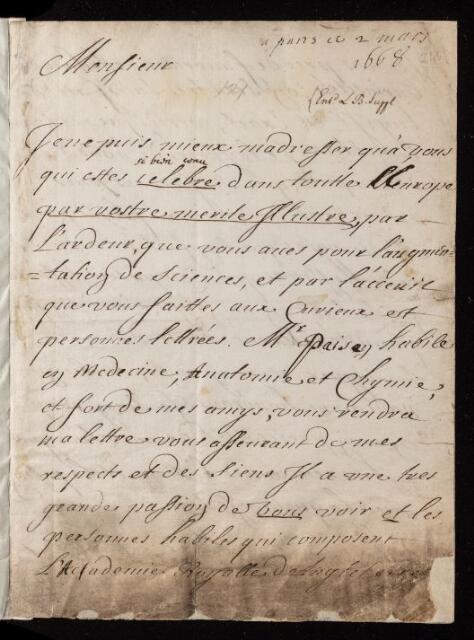 a paris ce 2 mars
1668
Monsieur
127
Ent^d L.B. Suppl
Je ne puis mieux madresser qu'a vous
si bien conu
qui estes celebre dans toutte l'Europe
par vostre merite Illustre, par
L'ardeur, que vous aues pour l'augmen-
=tation de sciences, et par l'acceuil
que vous faittes aux Curieux et
personnes lettrées. M^r Paisen habile
en Medecine, Anatomie et Chymie,
et fort de mes amys, vous rendra
ma lettre vous asseurant de mes
respects et des siens Il a vne tres
grande passion de vous voir et les
personnes habiles qui composent
L'Accademie Royalle d'Angleterre